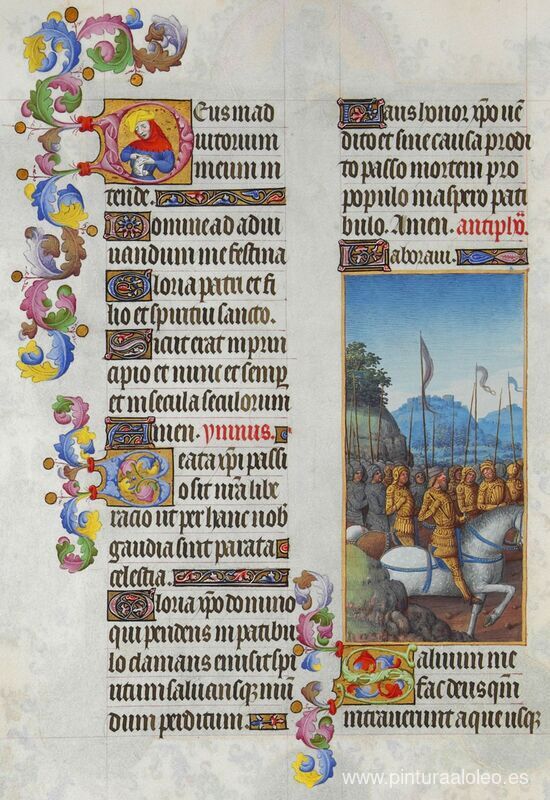 Deus in ad
iutorium
meum in
tende.
Domine ad adiu
vandum me festina
Gloria patri et fi
lio et spiritui sancto.
Sicut erat in prin
cipio et nunc et semp
et in secula seculorum
Amen. ymnus.
Beata xpi passi
o sit nra libe
racio ut per hanc nob
gaudia sint parata
celestia.
Gloria xpo domino
qui pendens in patibu
lo clamans emisit spi
ritum salvans mun
dum perditum.
Laus honor xpo ven
dito et sine causa prodi
to passo mortem pro
populo in aspero pati
bulo. Amen. antipho.
Laboravi.
Salvum me
fac deus qm
intraverunt aque usq
www.pinturaaloleo.es